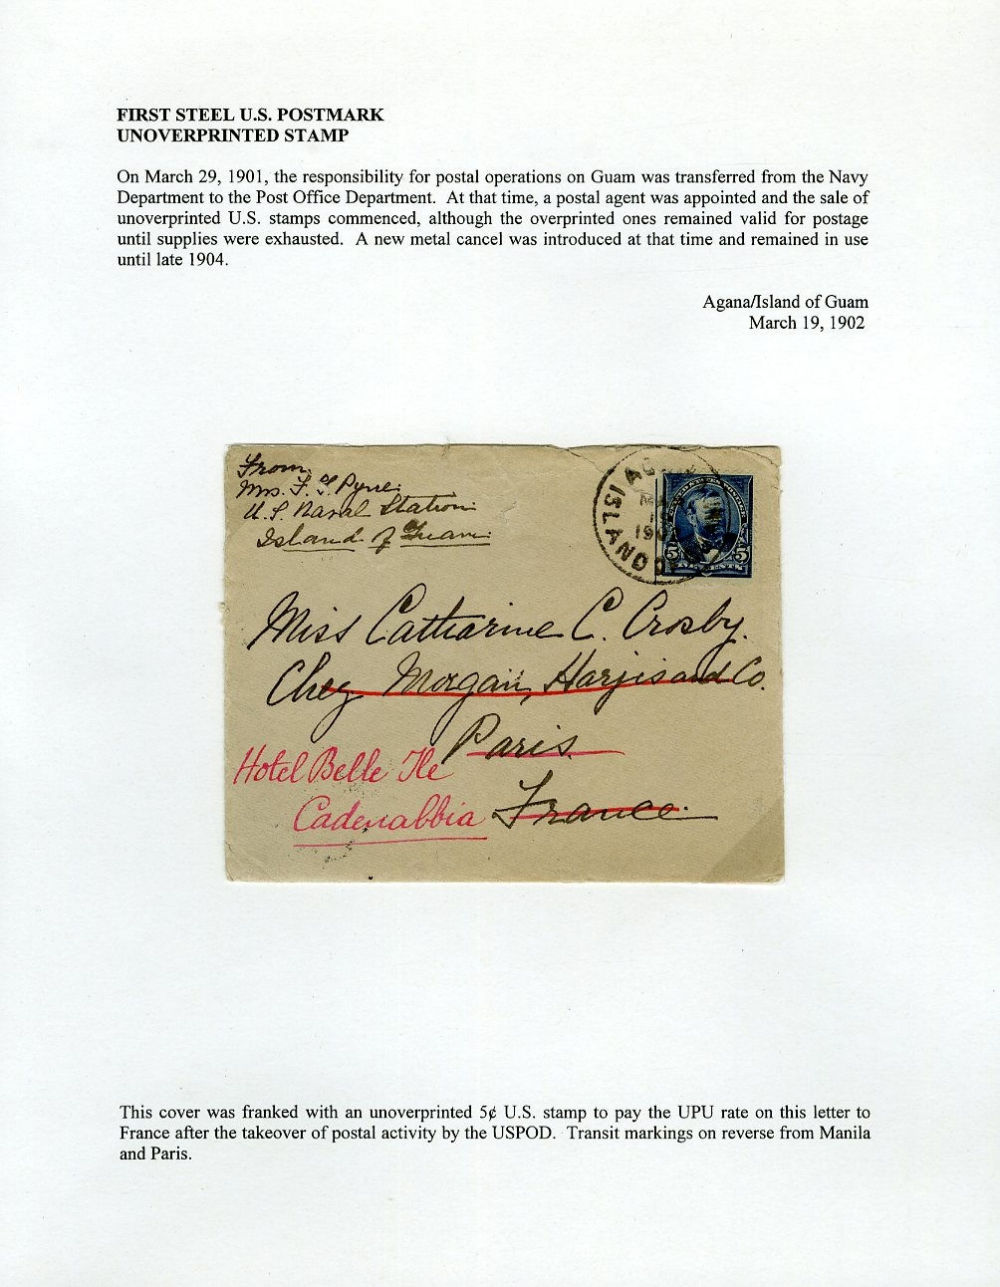 FIRST STEEL U.S. POSTMARK
UNOVERPRINTED STAMP
On March 29, 1901, the responsibility for postal operations on Guam was transferred from the Navy
Department to the Post Office Department. At that time, a postal agent was appointed and the sale of
unoverprinted U.S. stamps commenced, although the overprinted ones remained valid for postage
until supplies were exhausted. A new metal cancel was introduced at that time and remained in use
until late 1904.
Agana/Island of Guam
March 19, 1902
From
Mrs. F. L. Pyne.
U.S. Naval Station
Island of Guam.
ISLAND
5 5
Miss Catharine C. Crosby.
Chez Morgan, Harjis and Co.
Paris.
Hotel Belle Ile
Cadenabbia
France.
This cover was franked with an unoverprinted 5¢ U.S. stamp to pay the UPU rate on this letter to
France after the takeover of postal activity by the USPOD. Transit markings on reverse from Manila
and Paris.